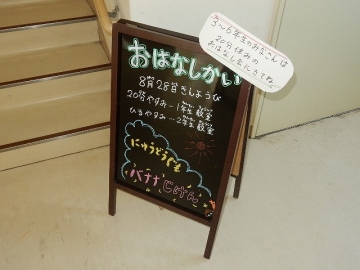 3〜6年生のみなさんは
20分休みの
おはなし会にきてね
おはなしかい
8月28日きんようび
20分やすみ…1年生教室
ひるやすみ…2年生教室
にゅうどうぐも
バナナじけん